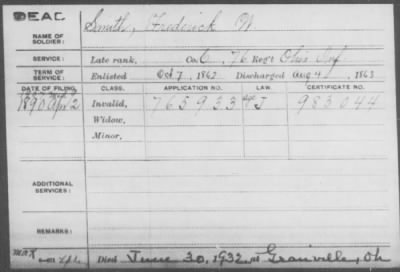 DEAC.
NAME OF SOLDIER: Smith, Frederick W.
SERVICE: Late rank, Co. C, 76 Reg't Ohio Inf
TERM OF SERVICE: Enlisted Oct 7, 1862 Discharged Aug 4, 1863
DATE OF FILING. CLASS. APPLICATION NO. LAW. CERTIFICATE NO.
1890 Apr 2 Invalid, 765933 J 983044
Widow,
Minor,
ADDITIONAL SERVICES:
REMARKS:
Died June 30, 1932, at Granville, Oh